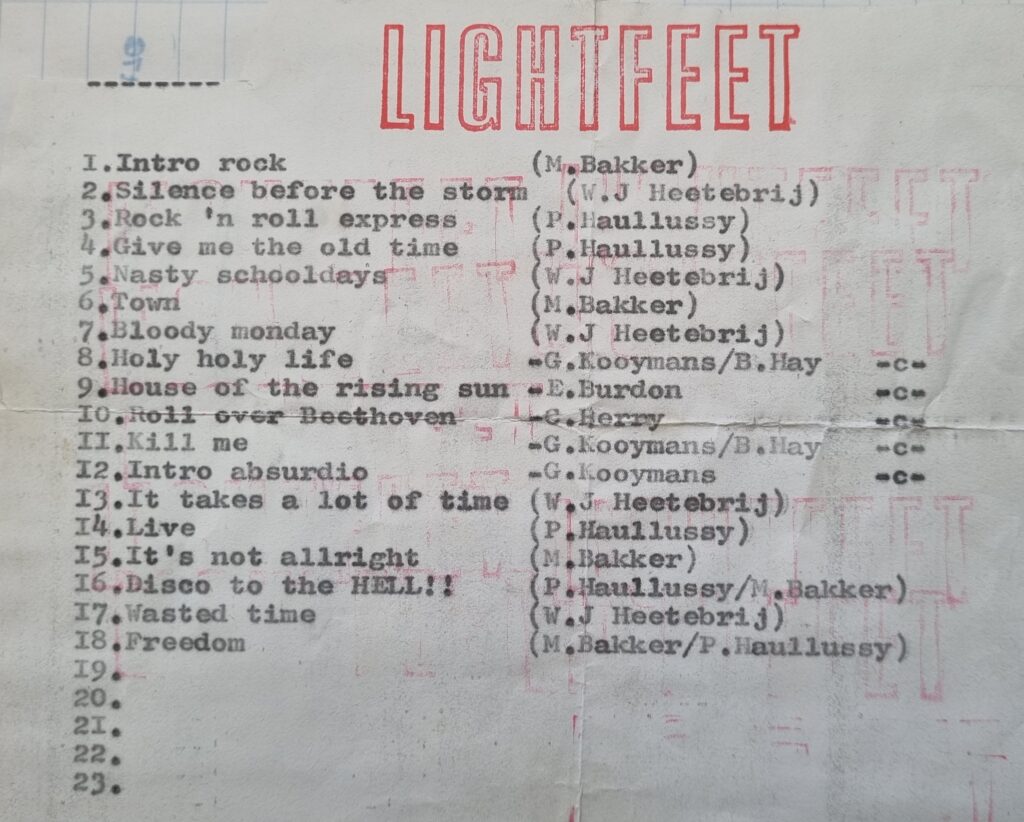 LIGHTFEET
--------
I.Intro rock (M.Bakker)
2.Silence before the storm (W.J Heetebrij)
3.Rock 'n roll express (P.Haullussy)
4.Give me the old time (P.Haullussy)
5.Nasty schooldays (W.J Heetebrij)
6.Town (M.Bakker)
7.Bloody monday (W.J Heetebrij)
8.Holy holy life -G.Kooymans/B.Hay -c-
9.House of the rising sun -E.Burdon -c-
IO.Roll over Beethoven -C.Berry -c-
II.Kill me -G.Kooymans/B.Hay -c-
I2.Intro absurdio -G.Kooymans -c-
I3.It takes a lot of time (W.J Heetebrij)
I4.Live (P.Haullussy)
I5.It's not allright (M.Bakker)
I6.Disco to the HELL!! (P.Haullussy/M.Bakker)
I7.Wasted time (W.J Heetebrij)
I8.Freedom (M.Bakker/P.Haullussy)
I9.
20.
2I.
22.
23.